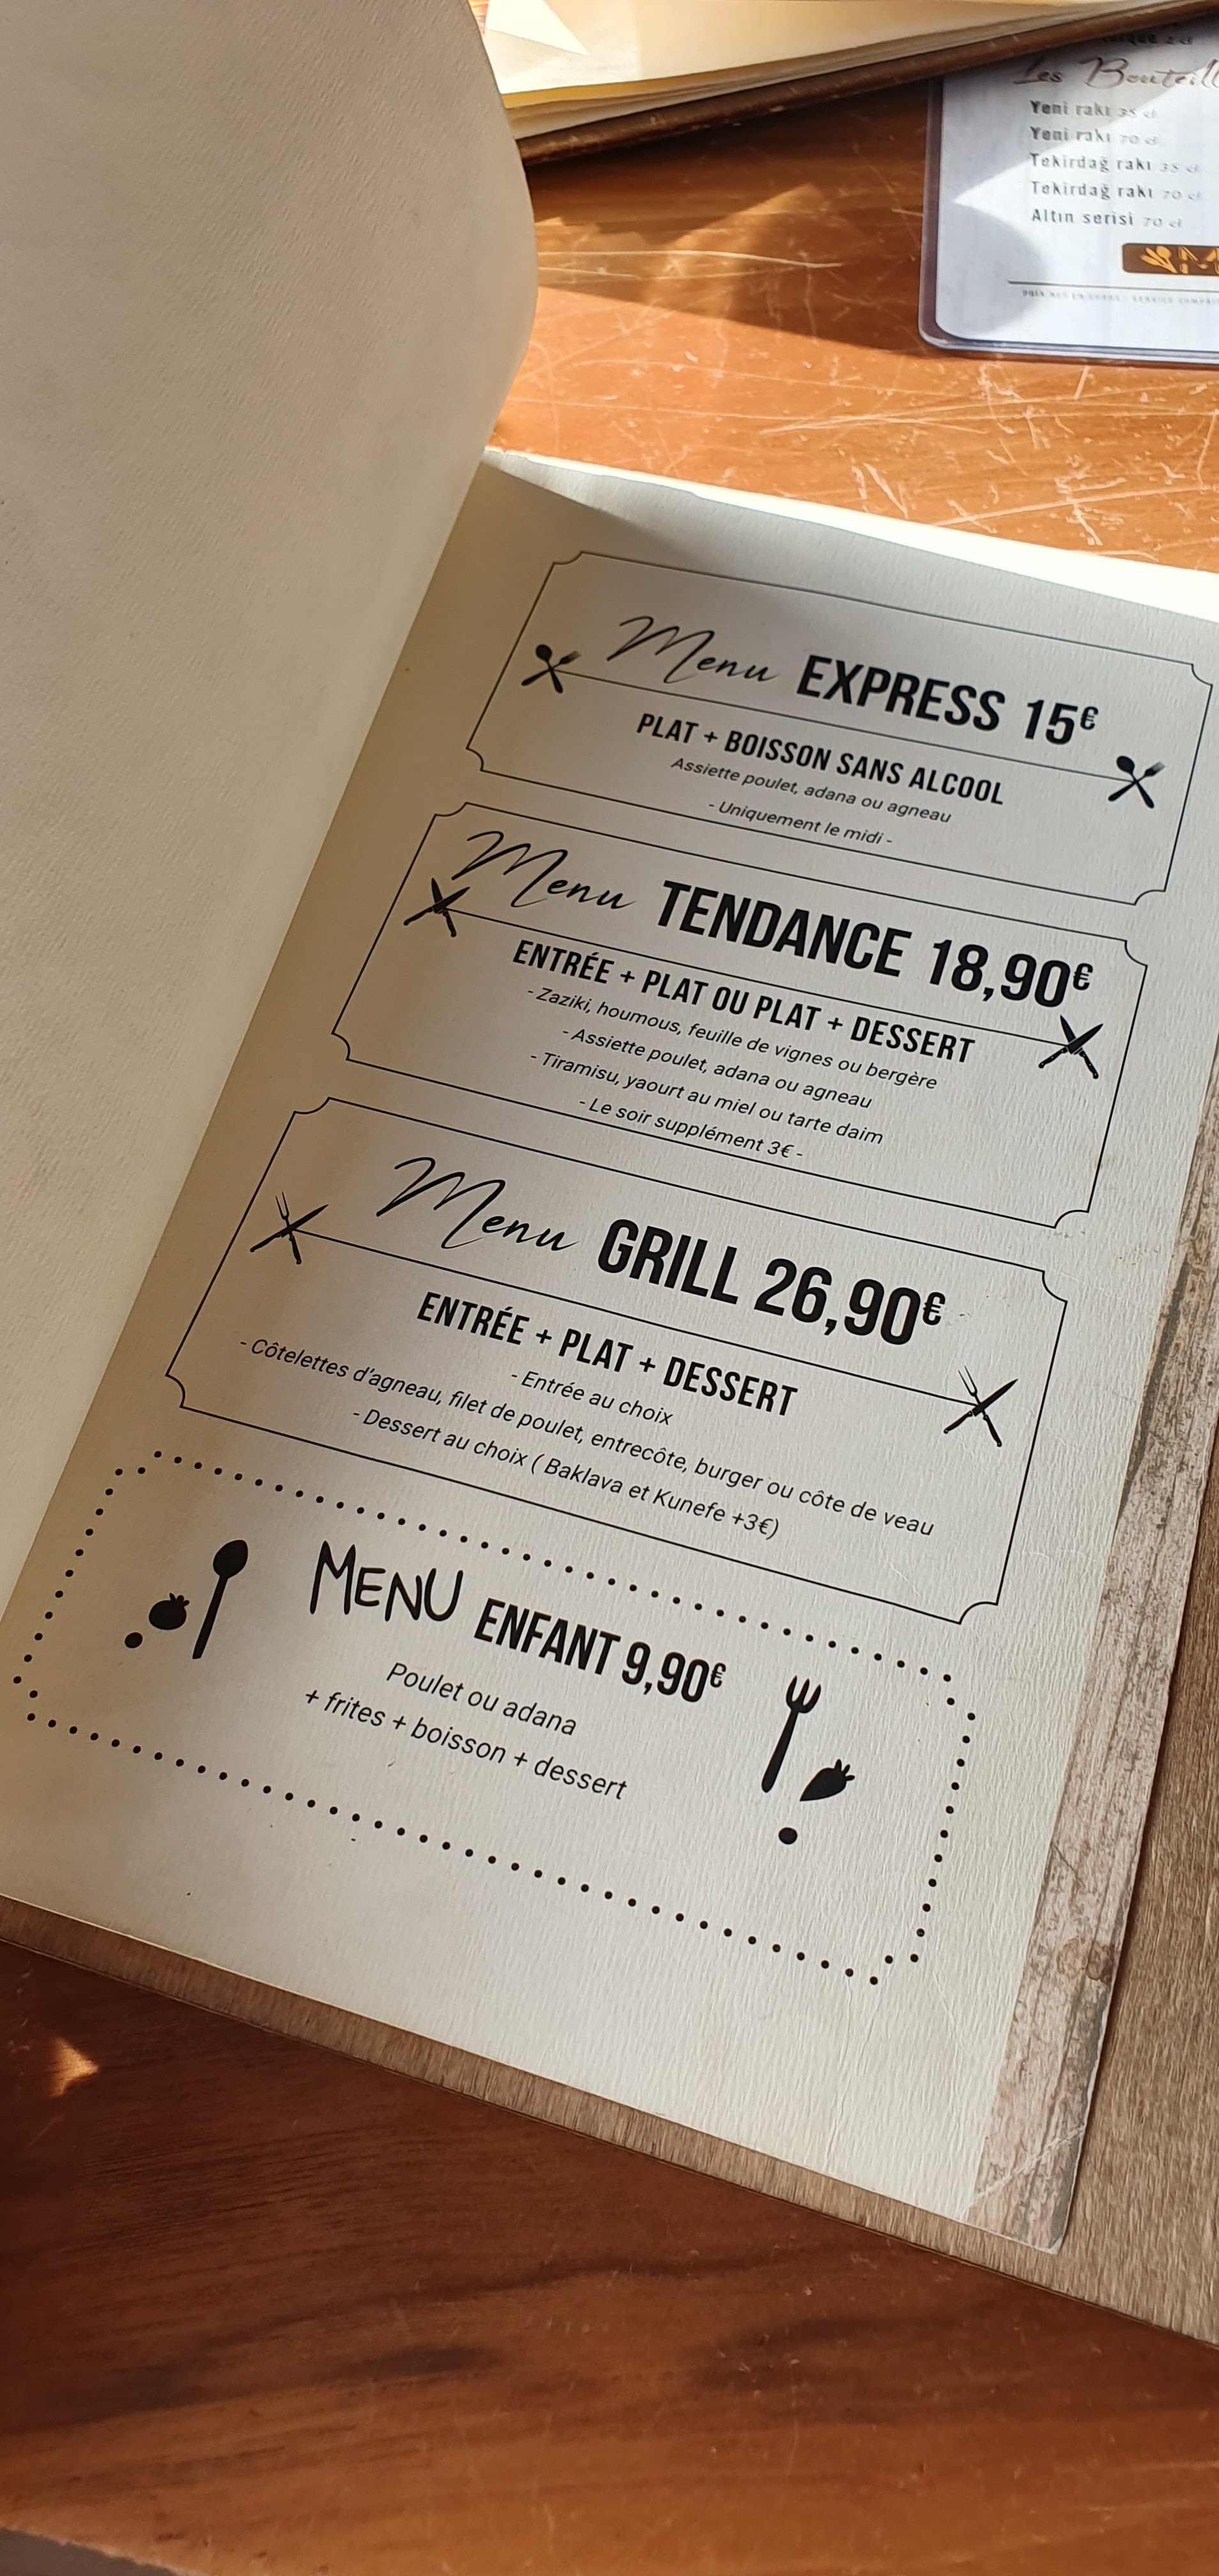 Les
Yeni rakı 35 cl
Yeni rakı 70 cl
Tekirdağ rakı 35 cl
Tekirdağ rakı 70 cl
Altın serisi 70 cl
Menu EXPRESS 15€
PLAT + BOISSON SANS ALCOOL
Assiette poulet, adana ou agneau
- Uniquement le midi -
Menu TENDANCE 18,90€
ENTRÉE + PLAT OU PLAT + DESSERT
- Zaziki, houmous, feuille de vignes ou bergère
- Assiette poulet, adana ou agneau
- Tiramisu, yaourt au miel ou tarte daim
- Le soir supplément 3€ -
Menu GRILL 26,90€
ENTRÉE + PLAT + DESSERT
- Entrée au choix
- Côtelettes d'agneau, filet de poulet, entrecôte, burger ou côte de veau
- Dessert au choix ( Baklava et Kunefe +3€)
MENU ENFANT 9,90€
Poulet ou adana
+ frites + boisson + dessert